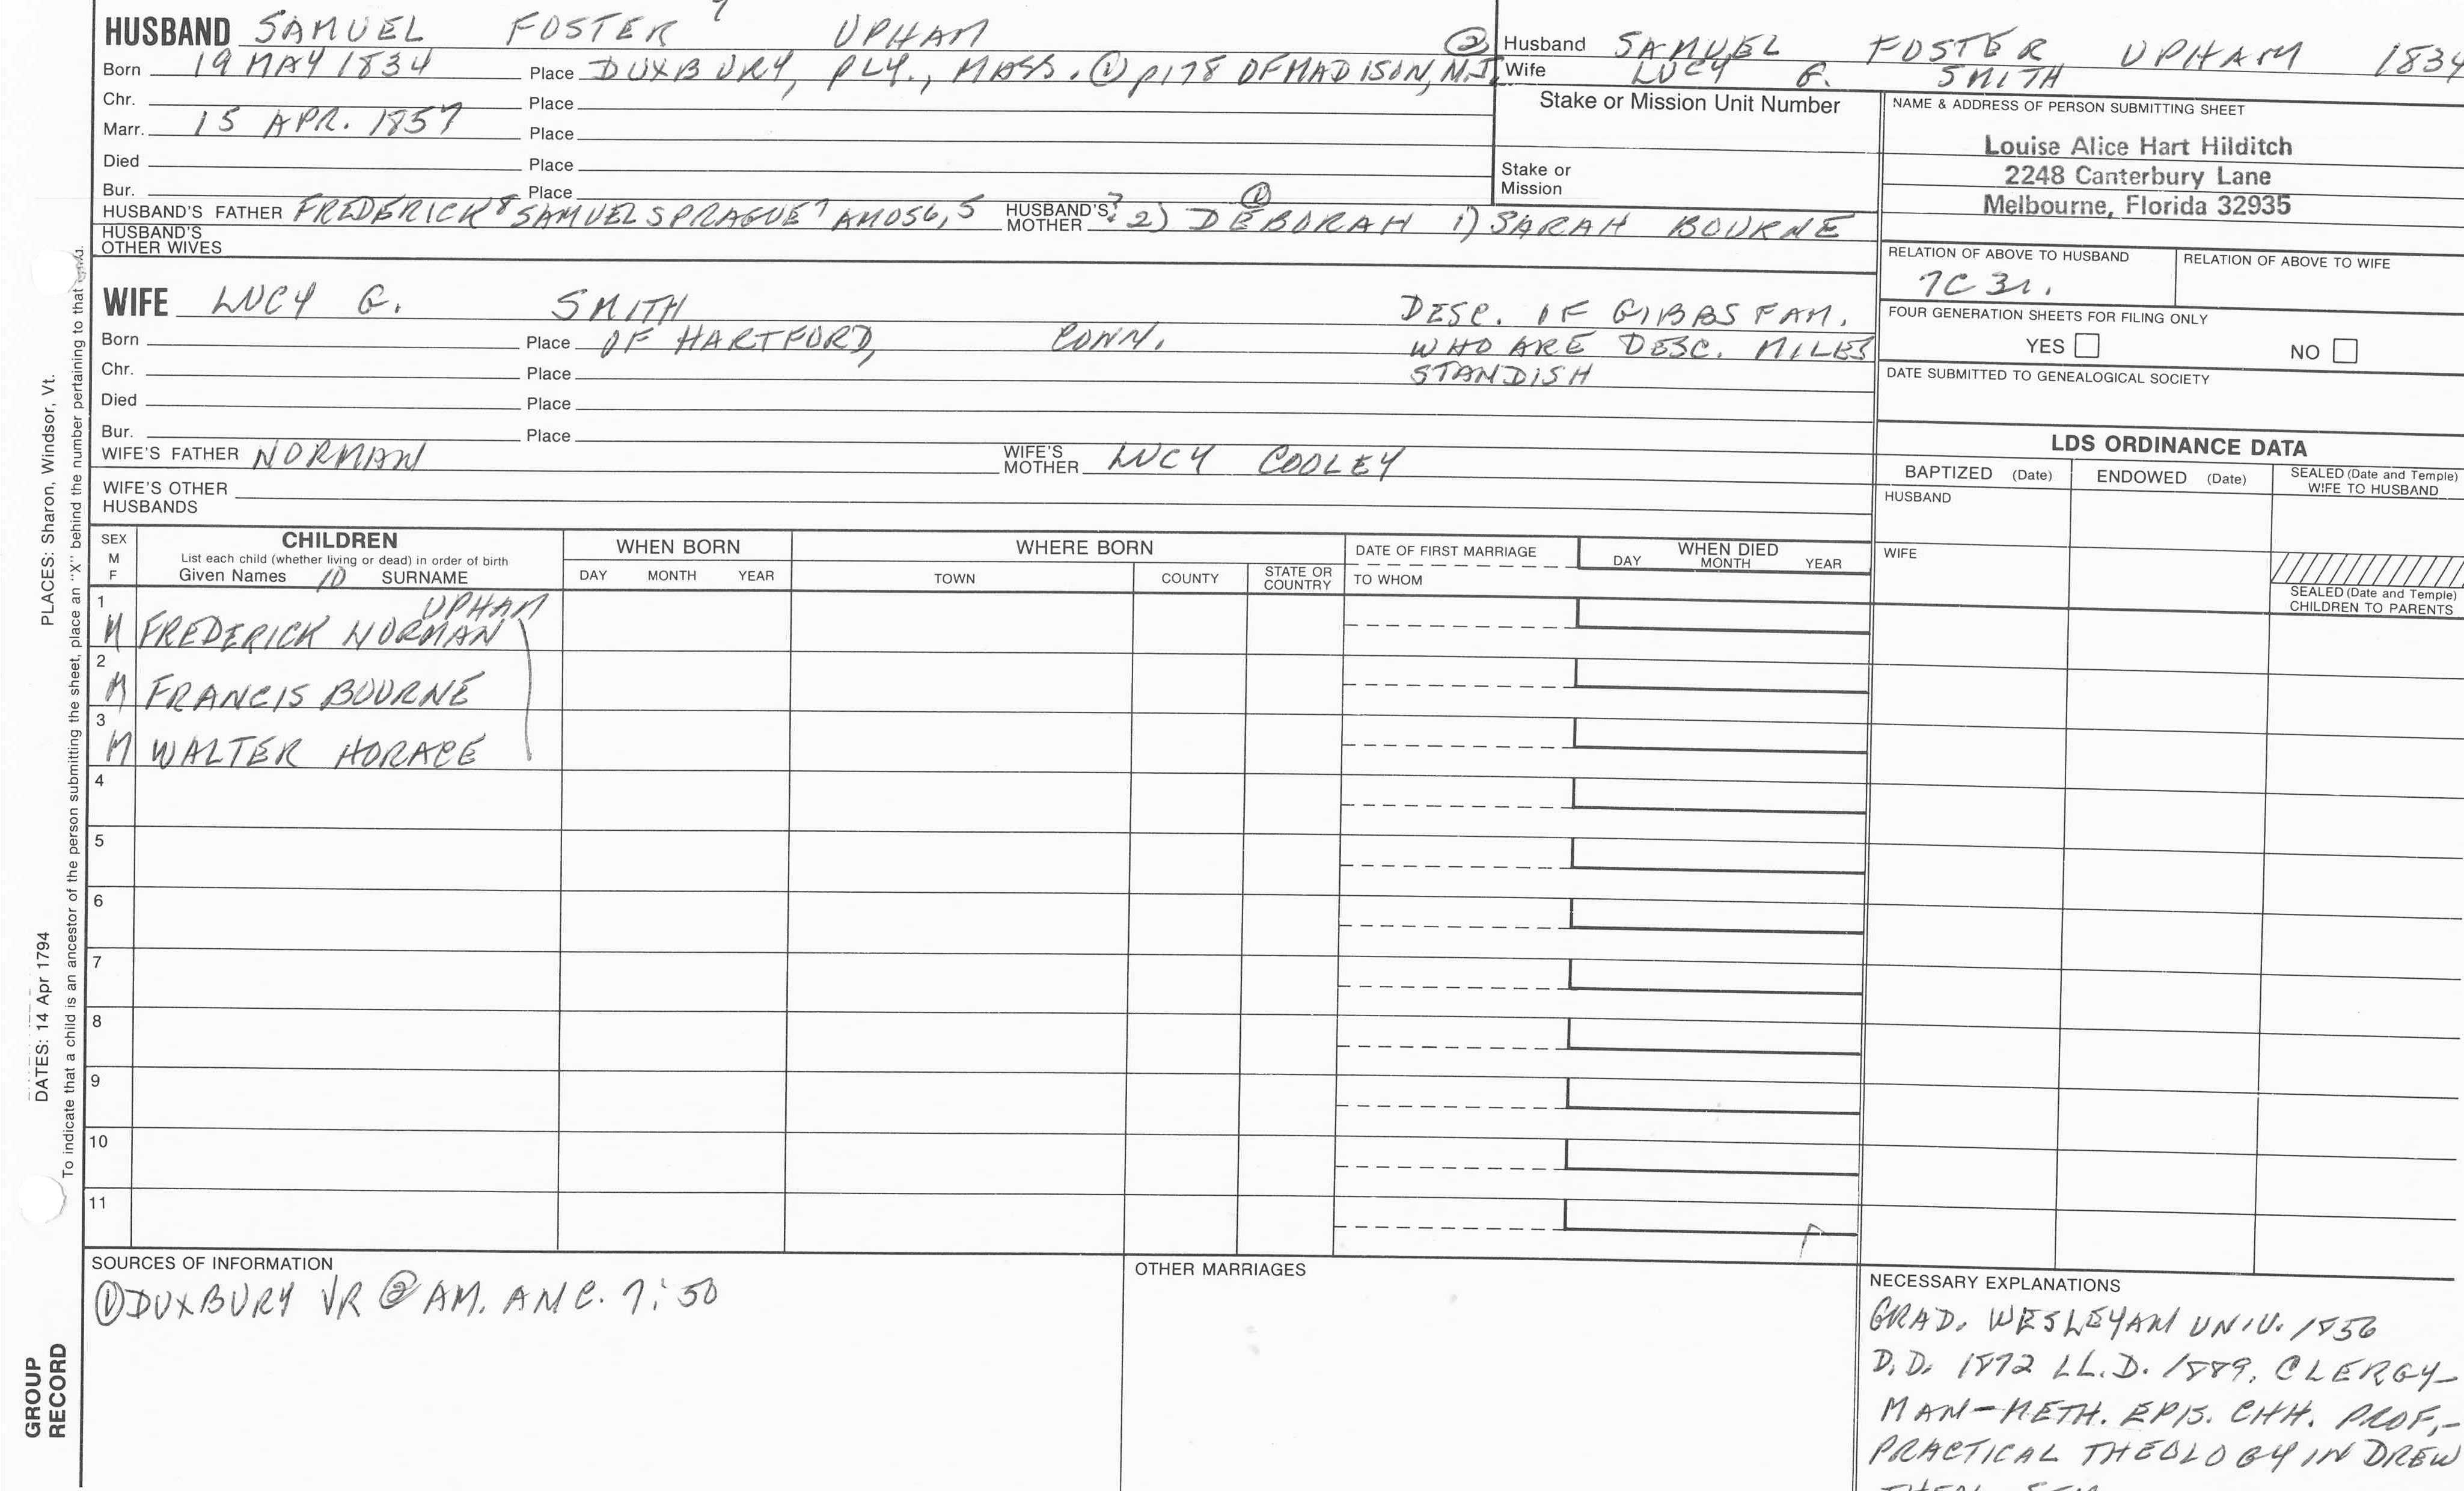 HUSBAND SAMUEL FOSTER UPHAM
Born 19 MAY 1834 Place DUXBURY, PLY., MASS. ① p178 OF MADISON, N.J. ②
Chr. Place
Marr. 15 APR. 1857 Place
Died Place
Bur. Place
HUSBAND'S FATHER FREDERICK⁸ SAMUEL SPRAGUE⁷ AMOS6,5 HUSBAND'S MOTHER ? 2) DEBORAH ① 1) SARAH BOURNE
HUSBAND'S OTHER WIVES
Husband SAMUEL FOSTER UPHAM 1834
Wife LUCY G. SMITH
Stake or Mission Unit Number
Stake or Mission
NAME & ADDRESS OF PERSON SUBMITTING SHEET
Louise Alice Hart Hilditch
2248 Canterbury Lane
Melbourne, Florida 32935
RELATION OF ABOVE TO HUSBAND RELATION OF ABOVE TO WIFE
7C 3r.
FOUR GENERATION SHEETS FOR FILING ONLY
YES NO
DATE SUBMITTED TO GENEALOGICAL SOCIETY
WIFE LUCY G. SMITH
Born Place OF HARTFORD, CONN.
Chr. Place
Died Place
Bur. Place
DESC. OF GIBBS FAM.
WHO ARE DESC. MILES
STANDISH
WIFE'S FATHER NORMAN WIFE'S MOTHER LUCY COOLEY
WIFE'S OTHER HUSBANDS
LDS ORDINANCE DATA
BAPTIZED (Date) ENDOWED (Date) SEALED (Date and Temple) WIFE TO HUSBAND
HUSBAND
WIFE
SEALED (Date and Temple)
CHILDREN TO PARENTS
SEX M F
CHILDREN
List each child (whether living or dead) in order of birth
Given Names 10 SURNAME
WHEN BORN
DAY MONTH YEAR
WHERE BORN
TOWN COUNTY STATE OR COUNTRY
DATE OF FIRST MARRIAGE
TO WHOM
WHEN DIED
DAY MONTH YEAR
1 M FREDERICK NORMAN UPHAM
2 M FRANCIS BOURNE
3 M WALTER HORACE
4
5
6
7
8
9
10
11
SOURCES OF INFORMATION
① DUXBURY VR ② AM. ANC. 7:50
OTHER MARRIAGES
NECESSARY EXPLANATIONS
GRAD. WESLEYAN UNIV. 1856
D.D. 1872 LL.D. 1889. CLERGY-
MAN-METH. EPIS. CHH. PROF,-
PRACTICAL THEOLOGY IN DREW
PLACES: Sharon, Windsor, Vt.
DATES: 14 Apr 1794
To indicate that a child is an ancestor of the person submitting the sheet, place an "X" behind the number pertaining to that
GROUP
RECORD